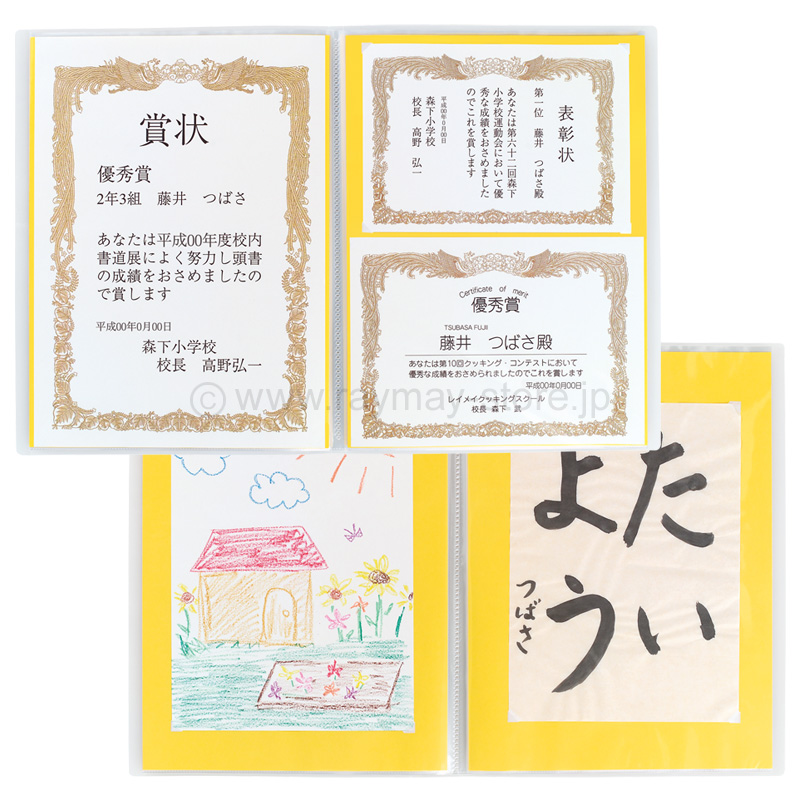 賞状
優秀賞
2年3組　藤井　つばさ
あなたは平成00年度校内
書道展によく努力し頭書
の成績をおさめましたの
で賞します
平成00年0月00日
森下小学校
校長　高野弘一
表彰状
第一位　藤井　つばさ殿
あなたは第六十二回森下
小学校運動会において優
秀な成績をおさめました
のでこれを賞します
平成00年0月00日
森下小学校
校長　高野　弘一
Certificate of merit
優秀賞
TSUBASA FUJII
藤井　つばさ殿
あなたは第10回クッキング・コンテストにおいて
優秀な成績をおさめられましたのでこれを賞します
平成00年0月00日
レイメイクッキングスクール
校長 森下　武
© www.raymay-store.jp
たい
よう
つばさ